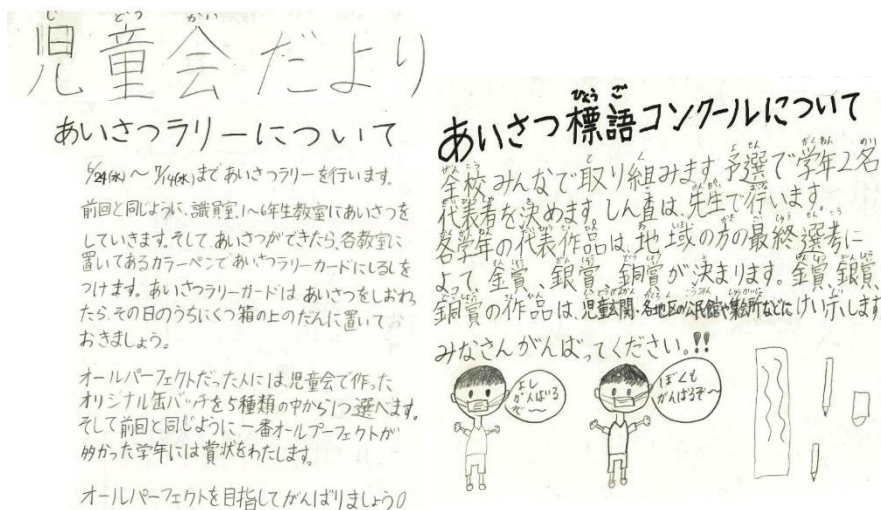 児童会だより
あいさつラリーについて
6/24(水)～7/14(水)まであいさつラリーを行います。
前回と同じように、識員室、1～6年生教室にあいさつを
していきます。そして、あいさつができたら、各教室に
置いてあるカラーペンであいさつラリーカードにしるしを
つけます。あいさつラリーガードは あいさつをしおわっ
たら、その日のうちにくつ箱の上のだんに置いて
おきましょう。
オールパーフェクトだった人には、児童会で作った
オリジナル缶バッチを5種類の中から1つ選べます。
そして前回と同じように 一番オールプーフェクトが
多かった学年には賞状をわたします。
オールパーフェクトを目指してがんばりましょう
あいさつ標語コンクールについて
全校みんなで取り組みます。予選で学年2名
代表者を決めます。しん査は、先生で行います。
各学年の代表作品は、地域の方の最終選考に
よって、金賞、銀賞、銅賞が決まります。金賞、銀賞、
銅賞の作品は、児童玄関・各地区の公民館や集会所などにけい示します
みなさんがんばってください。!!
よし
がんばる
ぞ〜
ぼくも
がんばるぞ〜